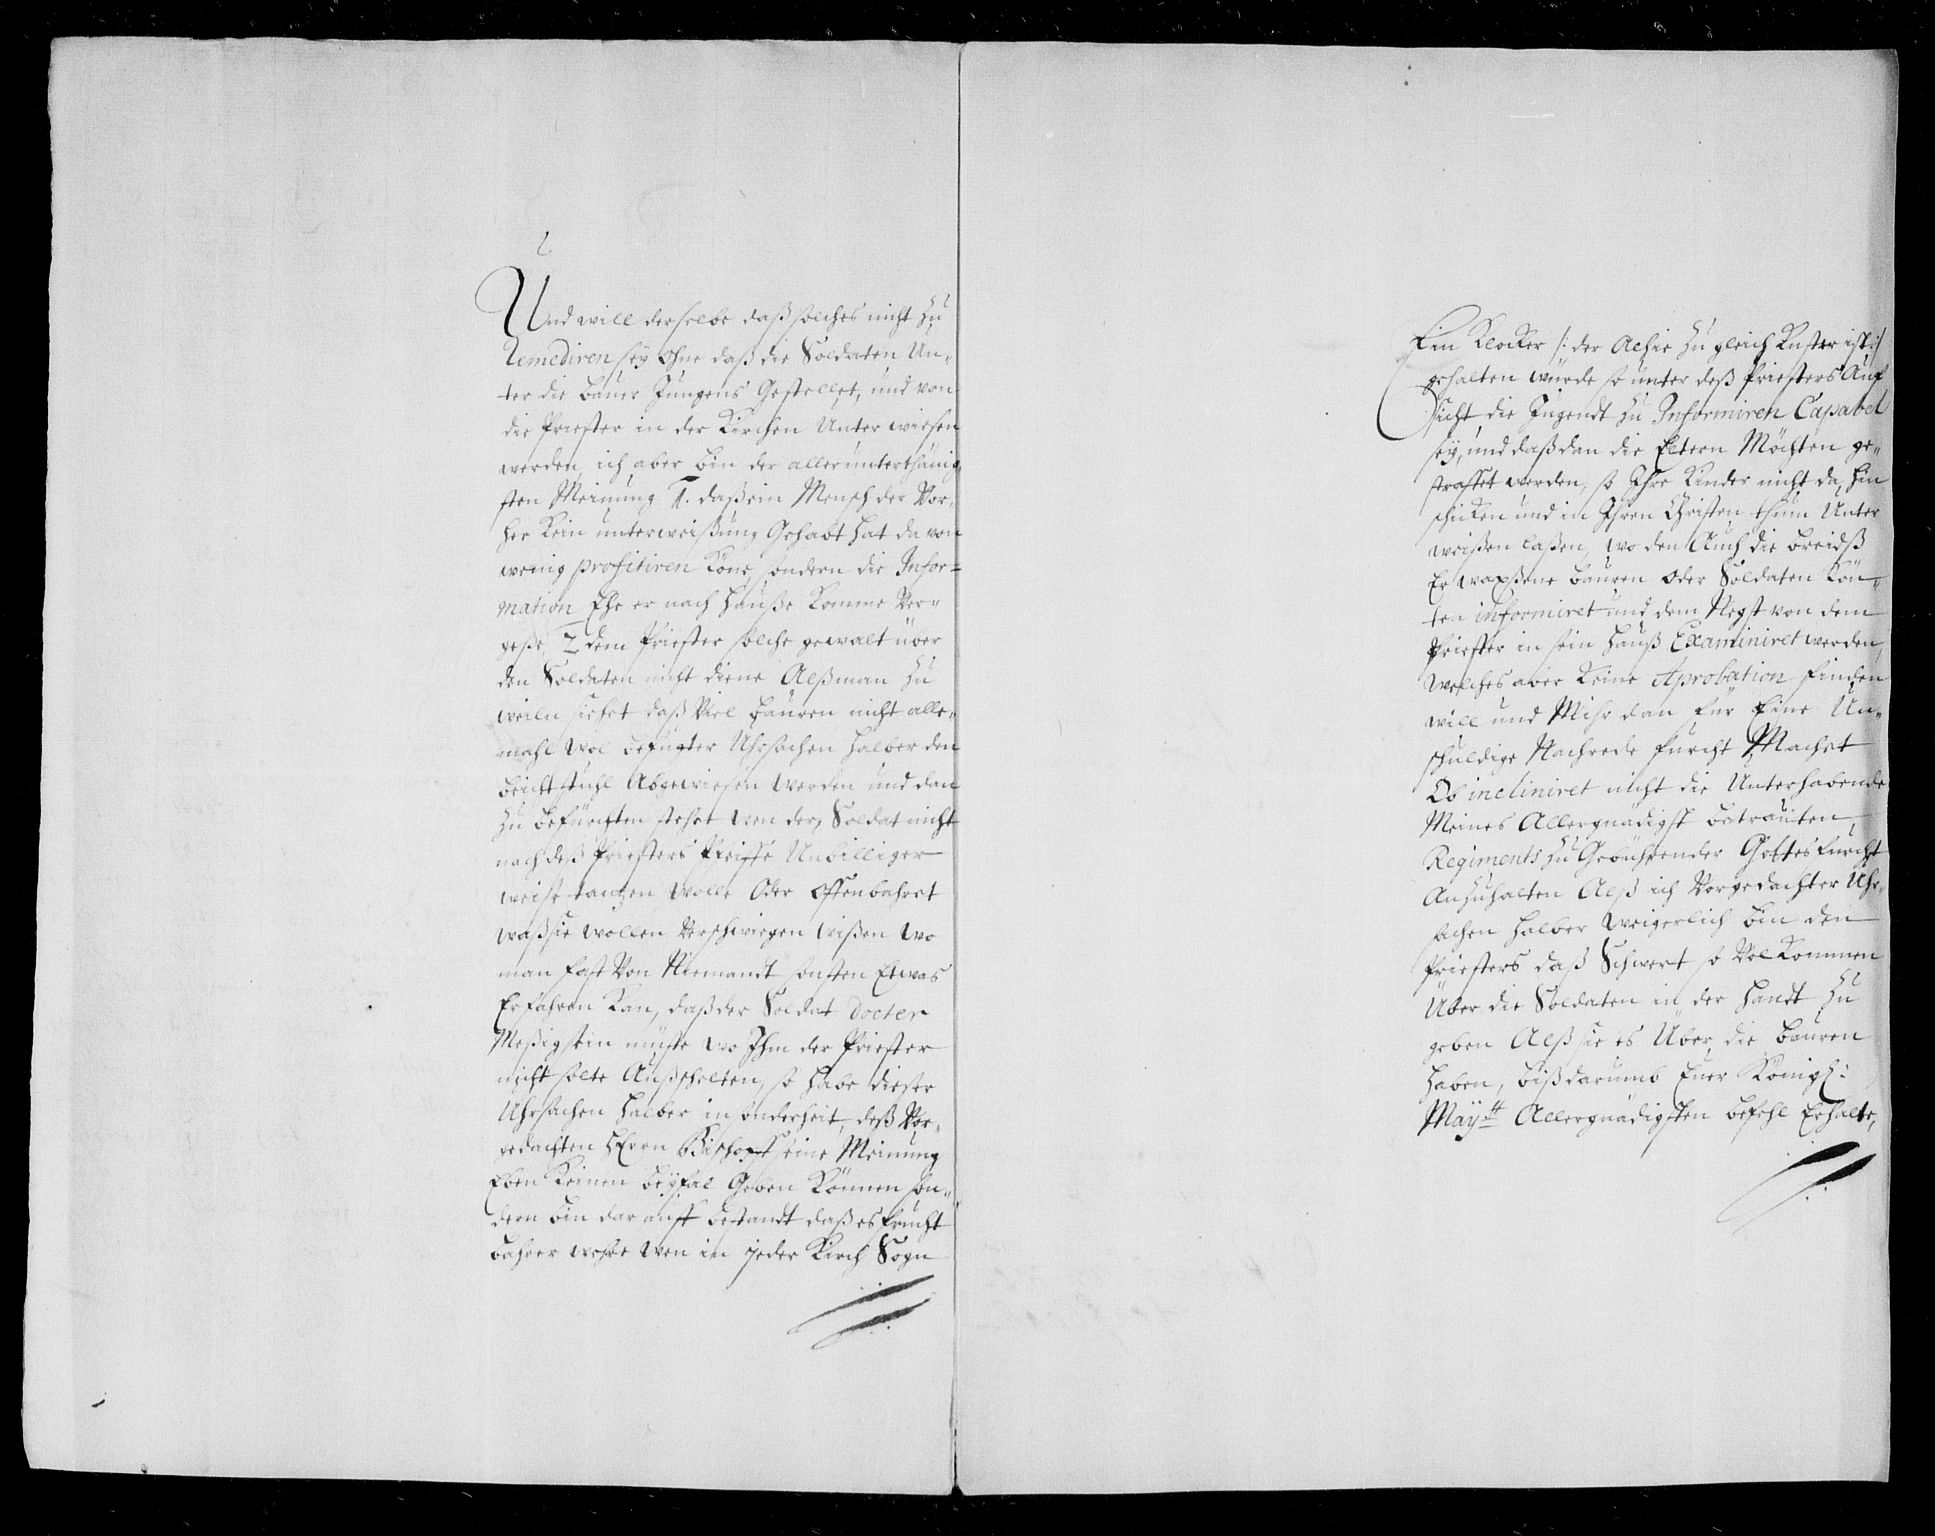 Und will derselbe daß solches nicht zu
Remediren seÿ ohne daß die Soldaten Un-
ter die bauer Jungens Gestellet, und von
die Priester in der Kirchen Unter wiesen
werden, ich aber bin der allerunterthänig
sten Meinung 1. daß ein Mensch der Vor-
her Kein unterweißung Gehabt hat da von
wenig profitiren Köne, sondern die Infor-
mation Ehe er nach Hauße Komme Ver-
geße, 2 dem Priester solche gewalt über
den Soldaten nicht diene Alßman zu
weiln siehet daß Viel bauren nicht alle-
mahl wol befugter Uhrsachen halber den
beicht stuhl Abgewiesen werden und dan
zu befürchten stehet wen der Soldat nicht
nach deß Priesters Pfeiffe Unbilliger
weise tantzen wolle Oder offenbahret
waß sie wollen Verschwiegen wißen wo
man fast Von Niemandt sonsten Etwas
Erfahren Kan, daß der Soldat docter
Meßigsein müste wo Ihm der Priester
nicht solte Außschelten, so habe dieser
Uhrsachen halber insonderheit, deß Vor-
gedachten HErrn Bischoff seine Meinung
Eben Keinen beÿfal Geben Können son-
dern bin darauff bestandt daß es frucht
bahrer wehre wen in jeder Kirch Sogn
Ein Klocker /: der Alhie zu gleich Kuster ist :/
gehalten würde so unter deß Priesters Auf
sicht die Jugendt zu Informiren Capabel
seÿ, und daß dan die Eltern Möchten ge-
straffet werden, so Ihre Kinder nicht da hin
schicken und in Ihren Christen thum Unter
weißen laßen, wo den Auch die breidß
Erwaxßene bauren Oder Soldaten Kön-
ten informiret und dem Negst von dem
Priester in sein Hauß Examiniret werden,
Welches aber Keine Aprobation finden
will und Mihr dan für Eine Un-
schuldige Nachrede furcht Machet
Ob incliniret nicht die Unterhabende
Meines Allergnädigst betrauten
Regiments zu Gebührender Gottesfurcht
Anzuhalten Alß ich Vorgedachter Uhr-
sachen halber weigerlich bin den
Priesters daß Schwert so Vol Kommen
Über die Soldaten in der Handt zu
geben Alß sie es Über die bauren
haben, biß darumb Euer Königl:
Maÿtt Allergnädigsten befehl Erhalte,